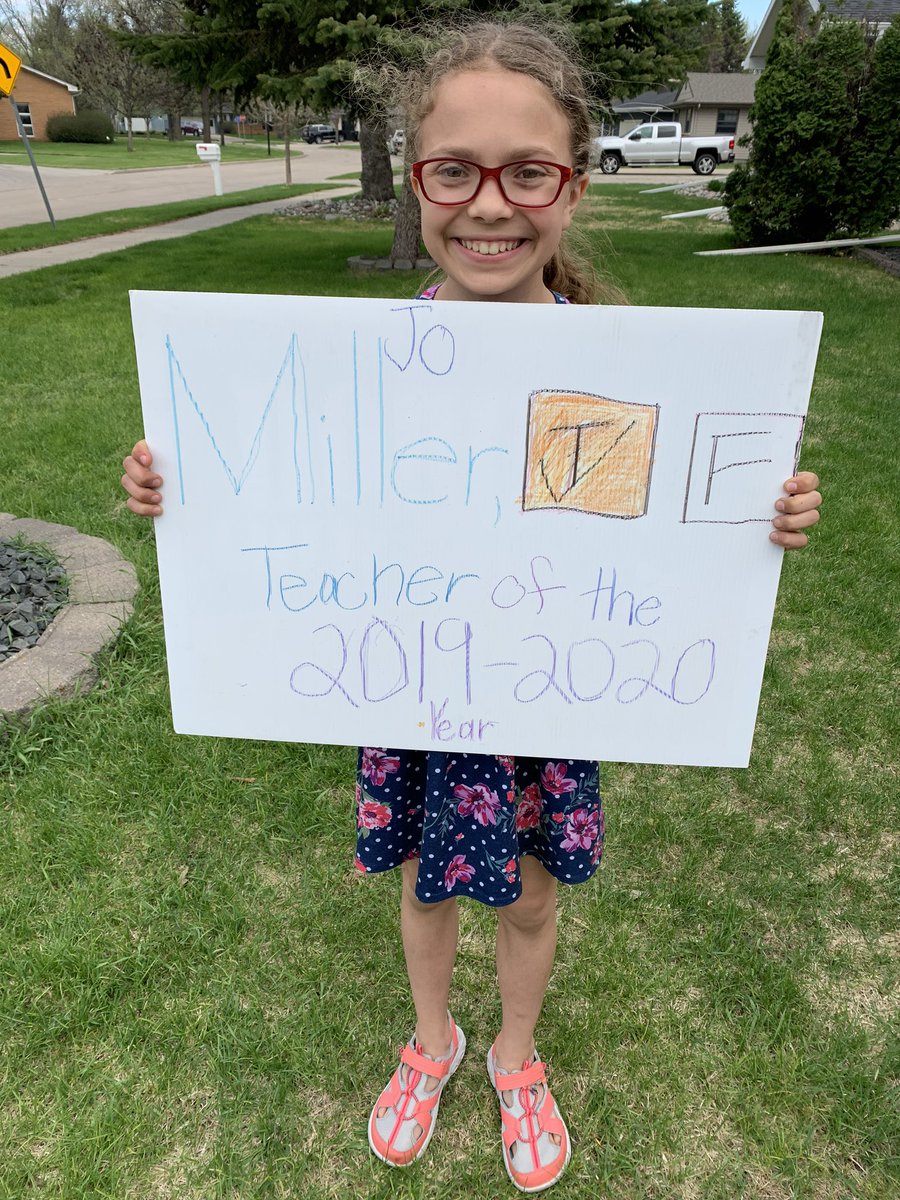 Jo
Miller, T F
Teacher of the
2019-2020
Year